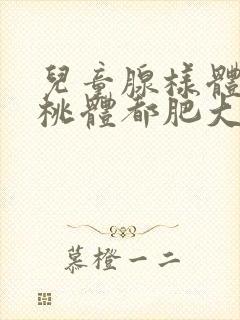 兒童腺樣體
桃體都肥大
慕橙一二